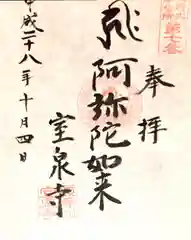 奉拝
阿弥陀如来
室泉寺
平成二十八年十月四日